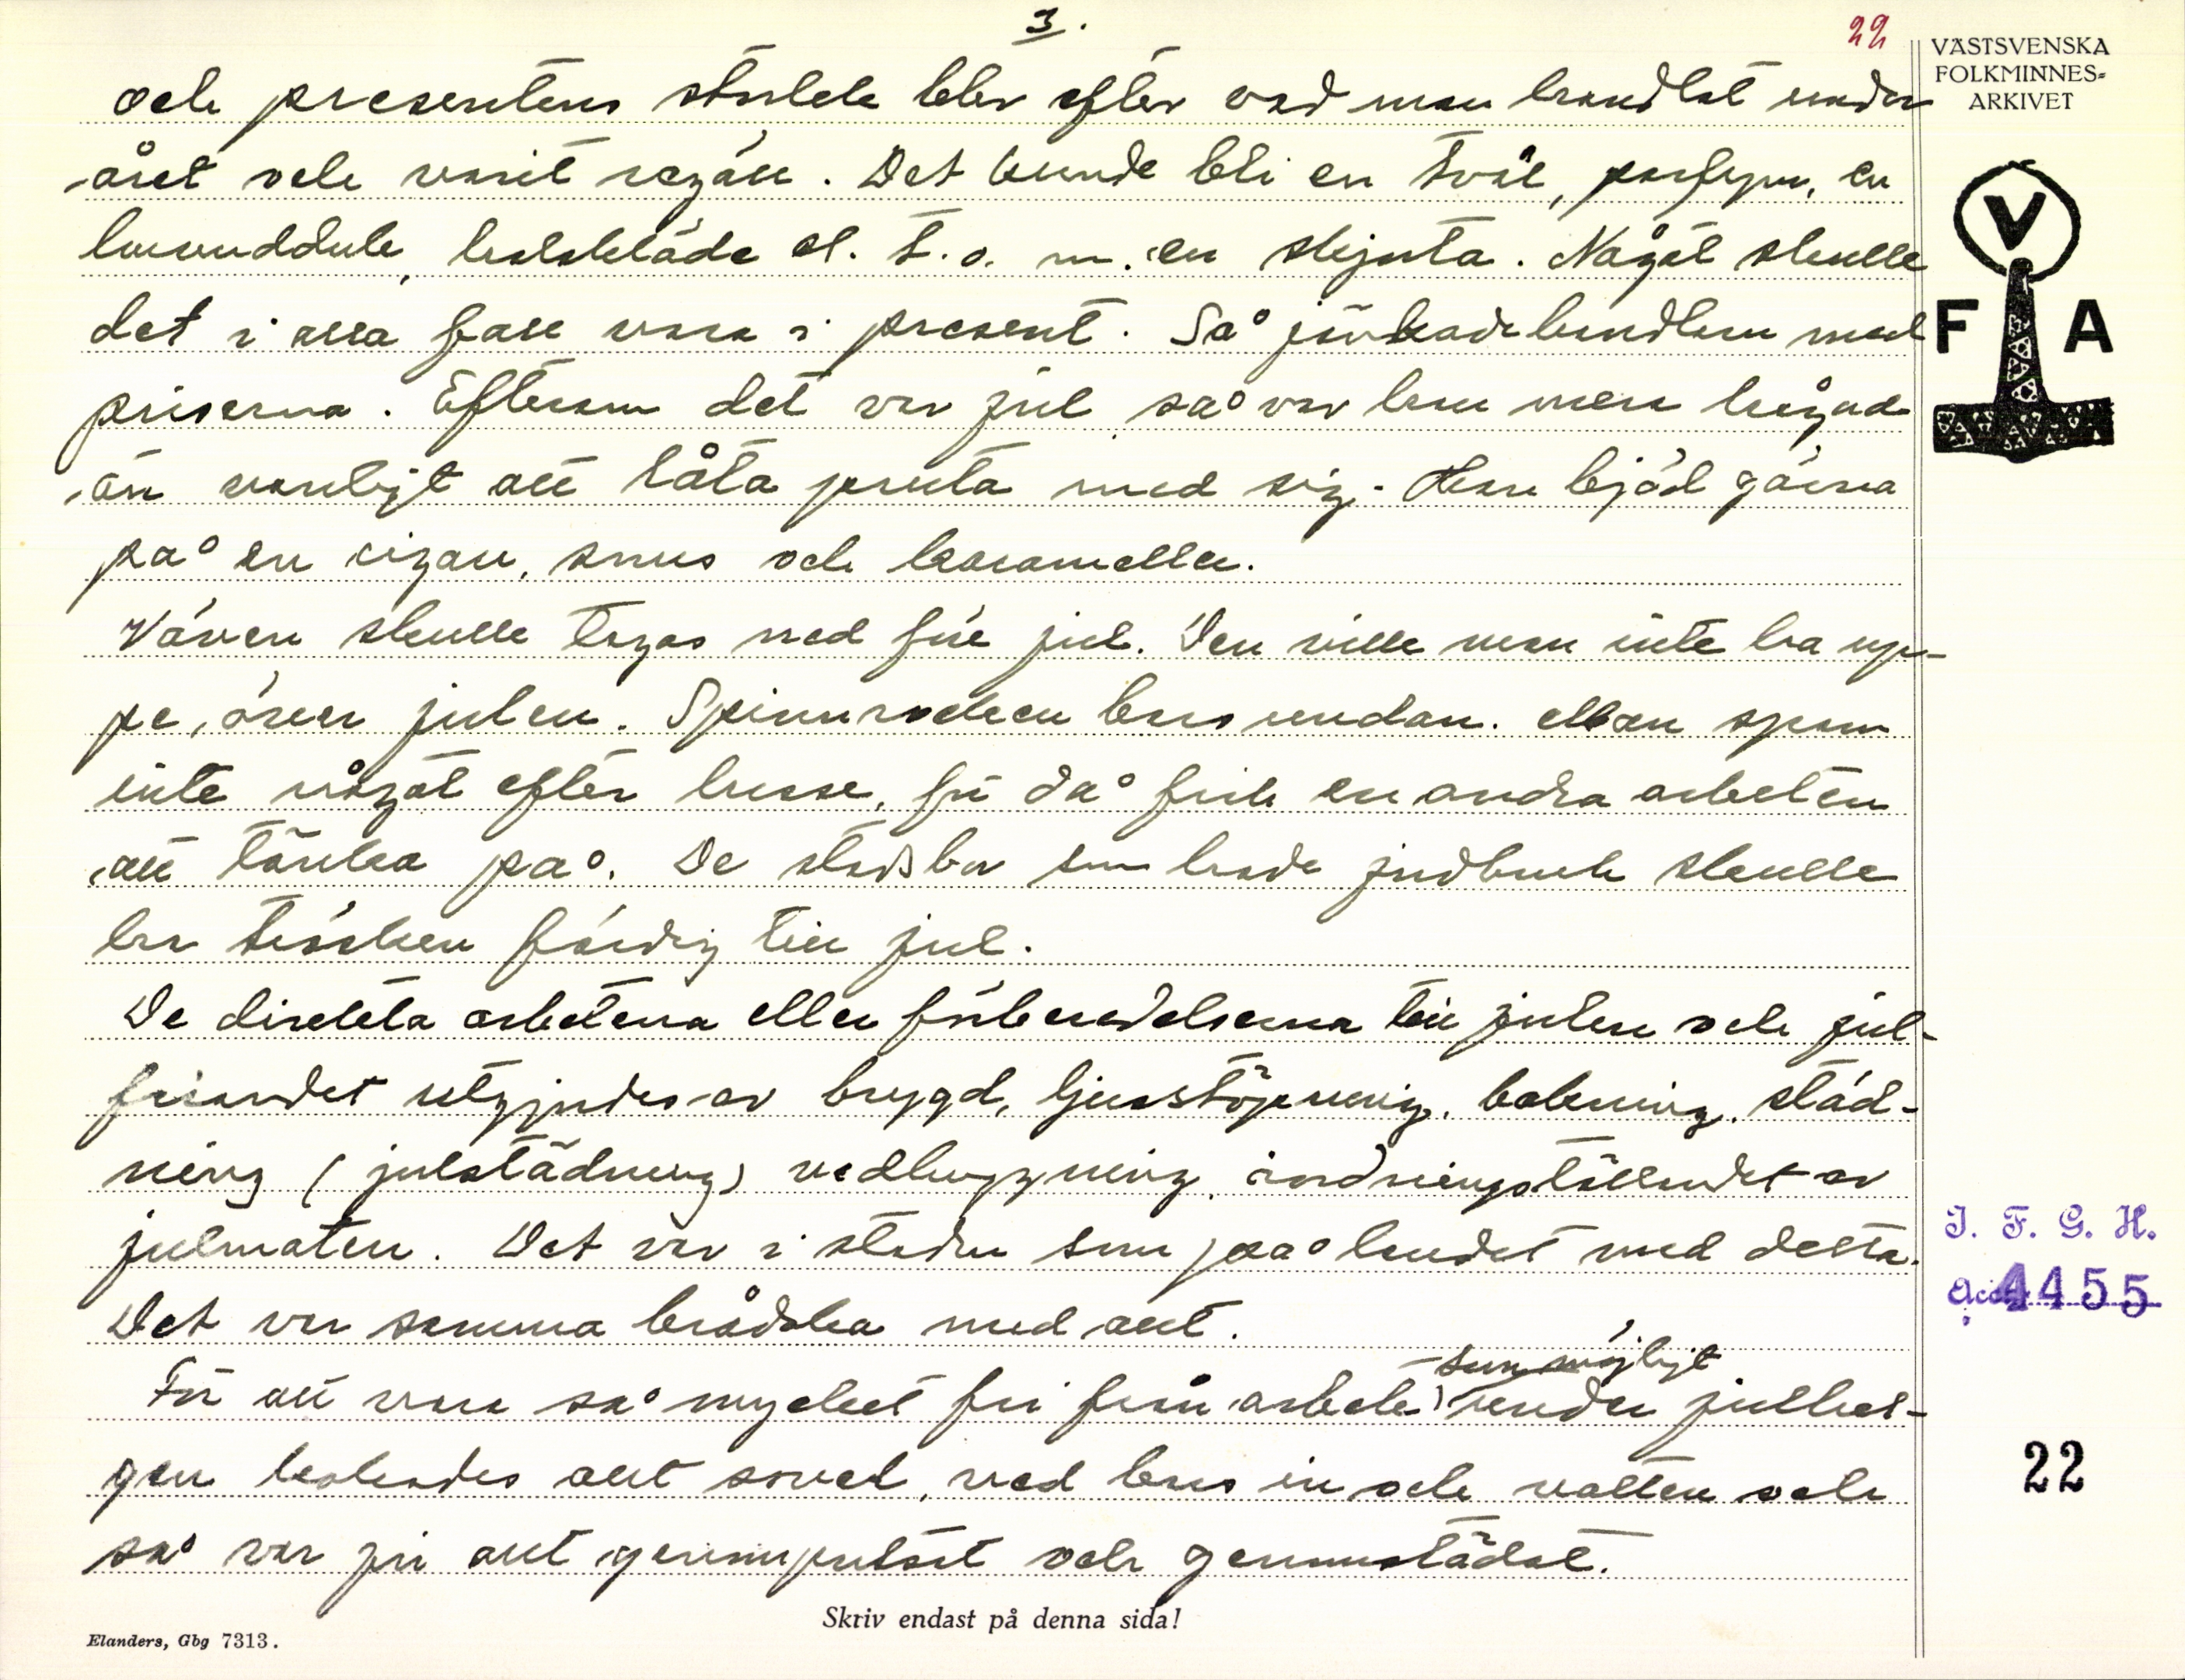 3.
22
VÄSTSVENSKA
FOLKMINNES-
ARKIVET
V
F A
och presentens storlek blev efter vad man handlat under
året och varit regäll. Det kunde bli en tvål, parfym, en
huvudduk, halskläde el. t.o.m. en skjorta. Någåt skulle
det i alla fall vara i present. Så jönkade handlarn med
priserna. Eftersom det var jul så var han mera hågad
än vanligt att låta pruta med sig. Han bjöd gärna
på en cigarr, snus och karameller.
Väven skulle tagas ned för jul. Den ville man inte ha up-
pe över julen. Spinnrocken bars undan. Man spann
inte någåt efter lusse, för då fick en andra arbeten
att tänka på. De stadsbor som hade jordbruk skulle
ha tösken färdig till jul.
De direkta arbetena eller förberedelserna till julen och jul-
firandet utgjordes av brygd, ljusstöpning, bakning, städ-
ning (julstädning) vedhuggning, iordningställandet av
julmaten. Det var i staden som på landet med detta.
Det var samma brådska med allt.
som möjligt
För att vara så mycket fri från arbete under julhel-
gen kokades allt sovel, ved bars in och vatten och
så var ju allt genomputsat och genomstädat.
J. F. G. H.
Acc. 4455
22
Skriv endast på denna sida!
Elanders, Gbg 7313.